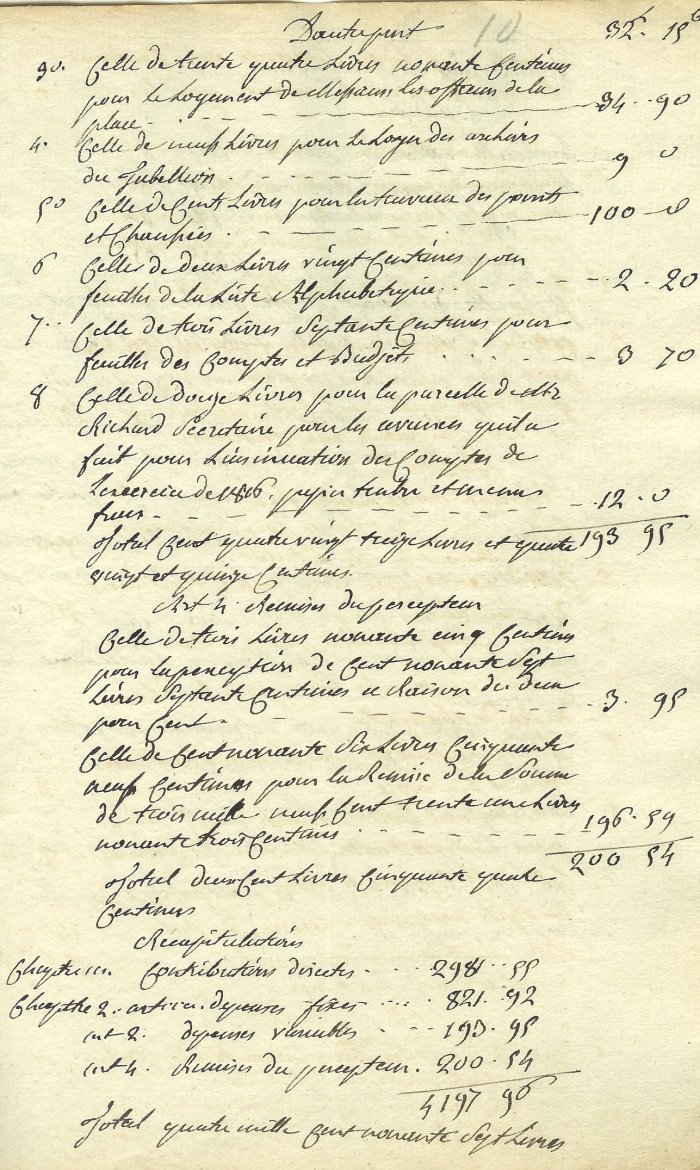 D'autre part 10 32 15
30. Celle de trente quatre Livres nonante Centimes
pour le Logement de Messieurs les officiers de la
place. 34. 90
4. Celle de neuf Livres pour le Loyer des archives
du Tabellion. 9 0
5° Celle de Cent Livres pour les travaux des ponts
et Chaussées. 100 0
6 Celle de deux Livres vingt Centimes pour
feuilles de la Liste Alphabetique. 2. 20
7.. Celle de trois Livres Septante Centimes pour
feuilles des Comptes et Budjets 3 70
8 Celle de douze Livres pour la parcelle de Mr
Richard Secretaire pour les avances qu'il a
fait pour L'insinuation des Comptes de
Lexercice de 1816. papier timbré et menus
frais. 12. 0
Total Cent quatre vingt treize Livres et quatre 193 95
vingt et quinze Centimes.
Art 4. Remises du percepteur
Celle de trois Livres nonante cinq Centimes
pour la perception de Cent nonante Sept
Livres Septante Centimes a Raison du deux
pour Cent. 3. 95
Celle de Cent nonante Six Livres Cinquante
neuf Centimes pour la Remise de la Somme
de trois mille neuf Cent trente une Livres
nonante trois Centimes 196. 59
200 54
Total deux Cent Livres Cinquante quatre
Centimes
Recapitulation
Chapitre 1er. Contributions directes. 2981. 55
Chapitre 2. art 1er. depenses fixes 821. 92
art 2. depenses variables 193. 95
art 4. Remises du percepteur. 200. 54
4197 96
Total quatre mille Cent nonante Sept Livres